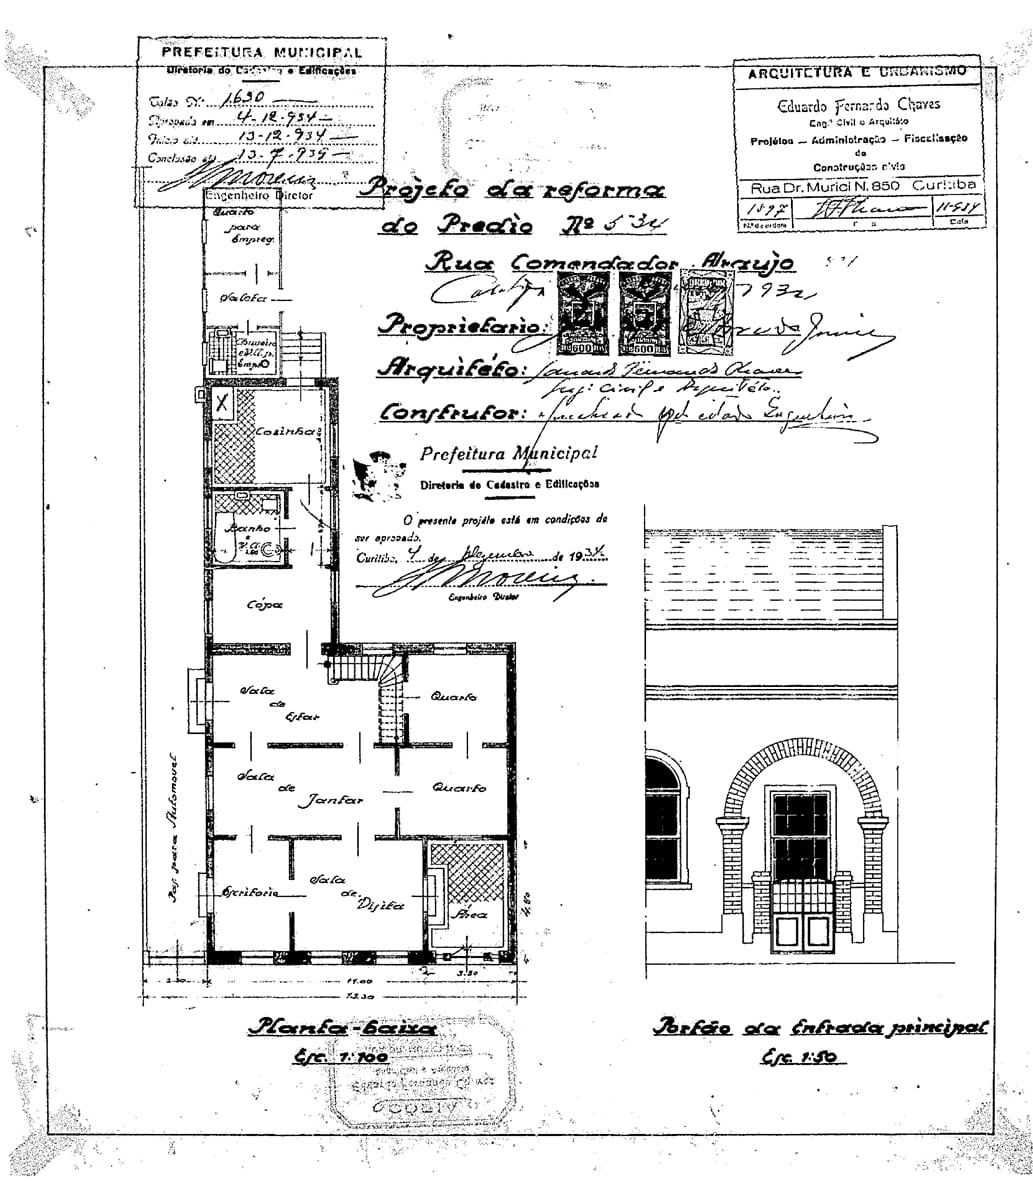 PREFEITURA MUNICIPAL
Diretoria do Cadastro e Edificações
Talão Nº 1.650
Aprovada em 4-12-934
Início até 13-12-934
Conclusão até 13-7-935
Engenheiro Diretor
ARQUITETURA E URBANISMO
Eduardo Fernando Chaves
Engº Civil e Arquitéto
Projétos — Administração — Fiscalisação
de
Construções civis
Rua Dr. Murici N. 850 Curitiba
1397
11-934
Nº de ordem
Data
Projeto da reforma
do Predio Nº 534
Rua Comendador Araujo
Proprietario:
Arquitéto: Eduardo Fernando Chaves
Engº Civil e Arquitéto
Construtor:
Prefeitura Municipal
Diretoria do Cadastro e Edificações
O presente projéto está em condições de
ser aprovado.
Curitiba, 4 de Dezembro de 1934
Engenheiro Diretor
Quarto
para
Empreg.
Saleta
Chuveiro
Cozinha
Banho
e
Cópa
Sala
de
Estar
Quarto
Sala
de
Jantar
Quarto
Escritorio
Sala
de
Visita
Área
Pas. para Automovel
4.80
3.50
11.00
13.30
Planta-baixa
Esc. 1:100
Portão da Entrada principal
Esc. 1:50